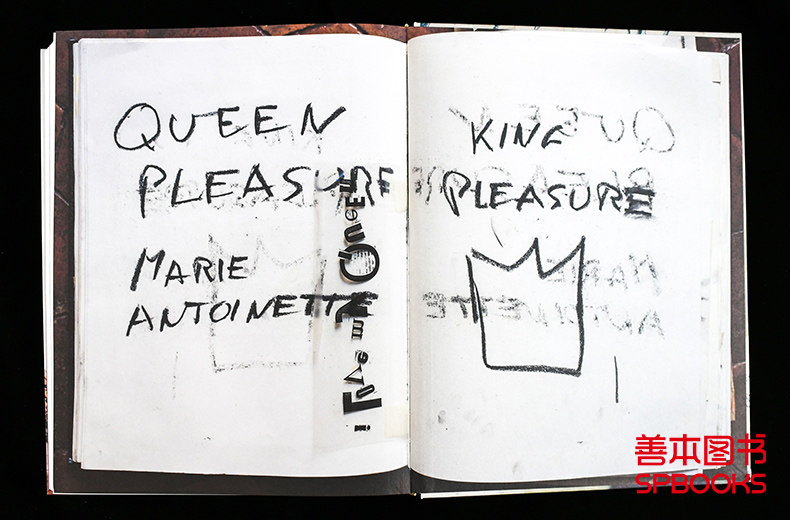 QUEEN
PLEASURE
MARIE
ANTOINETTE
KING
PLEASURE
善本图书
SPBOOKS